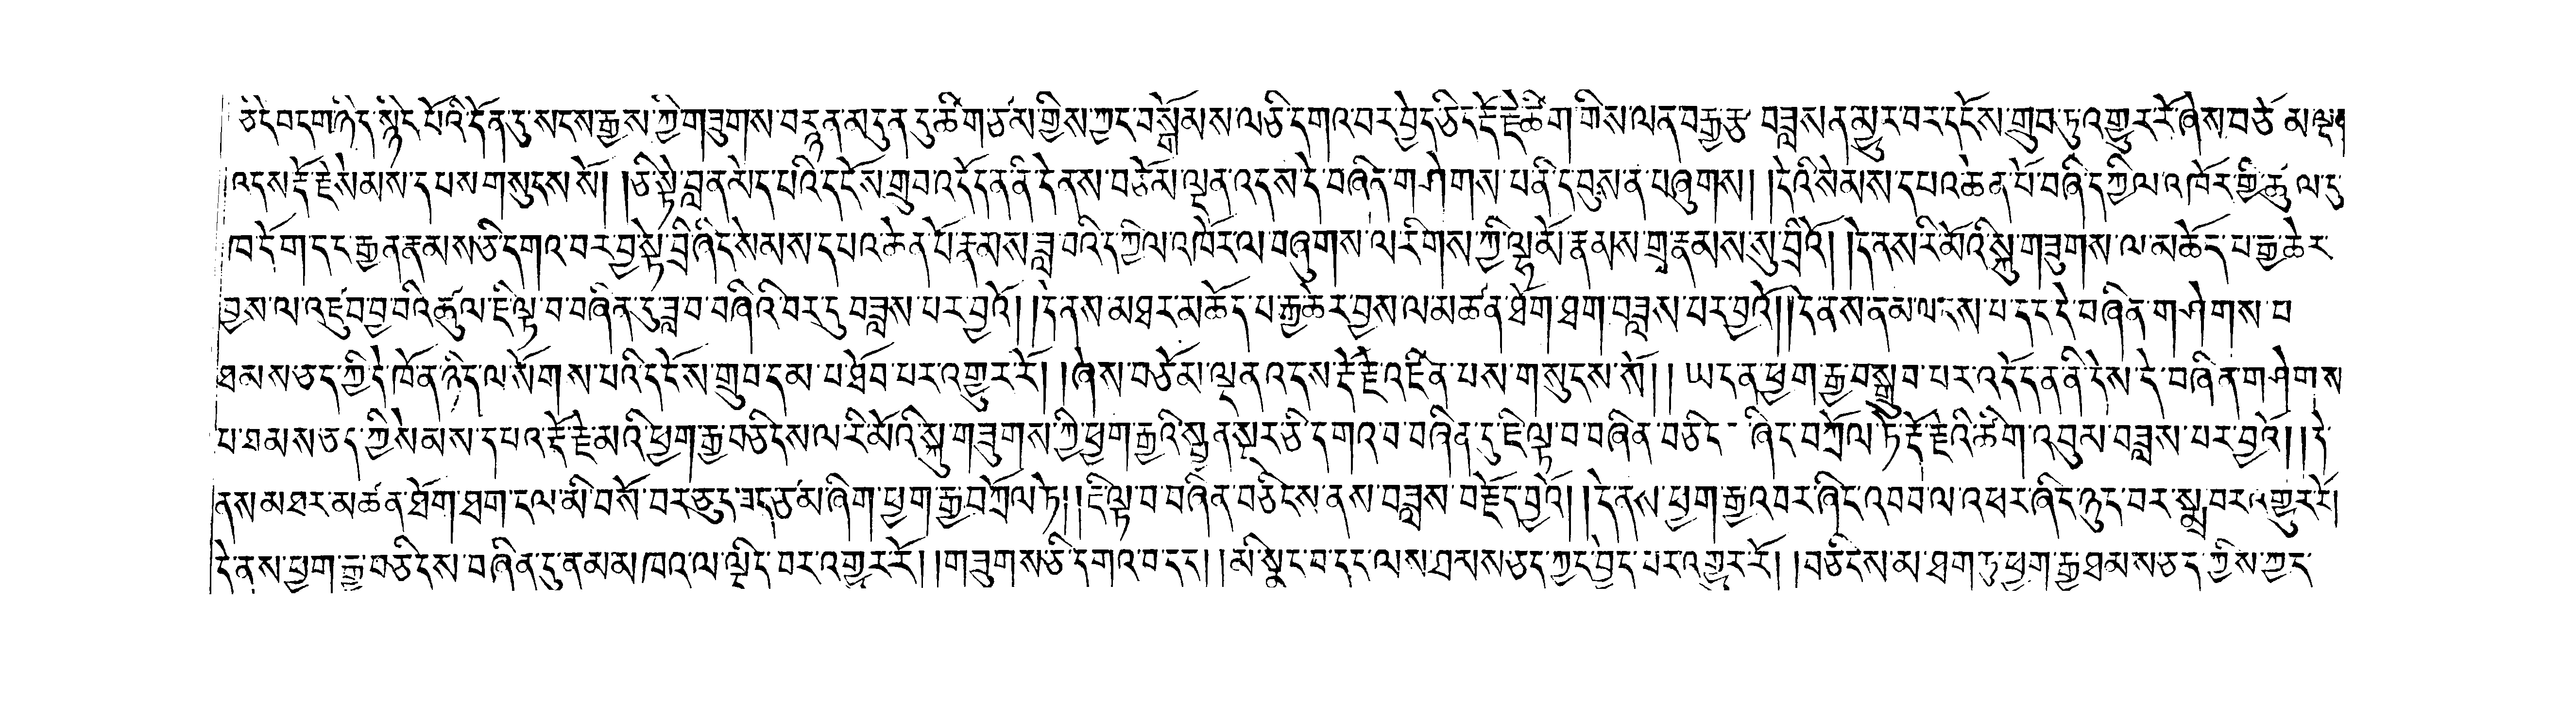 ཅི་དེ་བདག་ཉིད་སྙིང་པོའི་དོན་དུ་སངས་རྒྱས་ཀྱི་གཟུགས་བརྙན་མདུན་དུ་ཚིག་ཙམ་གྱིས་ཀྱང་བསྒོམས་ལ་ཅི་དགའ་བར་བྱེད་ཅིང་རྡོ་རྗེ་ཚིག་གིས་ལན་བརྒྱ་རྩ་བཟླས་ན་མྱུར་བར་དངོས་གྲུབ་ཏུ་འགྱུར་རོ་ཞེས་བཅོམ་ལྡན
འདས་རྡོ་རྗེ་སེམས་དཔས་གསུངས་སོ། །ཅི་སྟེ་བླ་ན་མེད་པའི་དངོས་གྲུབ་འདོད་ན་ནི་དེ་ནས་བཅོམ་ལྡན་འདས་དེ་བཞིན་གཤེགས་པ་ནི་དབུས་ན་བཞུགས། །དེའི་སེམས་དཔའ་ཆེན་པོ་བཞི་དཀྱིལ་འཁོར་གྱི་ཚུལ་དུ
ཁ་དོག་དང་རྒྱན་རྣམས་ཅི་དགའ་བར་བྱ་སྟེ་བྲི་ཞིང་སེམས་དཔའ་ཆེན་པོ་རྣམས་ཟླ་བའི་དཀྱིལ་འཁོར་ལ་བཞུགས་ལ་རིགས་ཀྱི་ལྷ་མོ་རྣམས་གྲྭ་རྣམས་སུ་བྲིའོ། །དེ་ནས་རི་མོའི་སྐུ་གཟུགས་ལ་མཆོད་པ་རྒྱ་ཆེར
བྱས་ལ་འཇུ་བ་བྱ་བའི་ཚུལ་ཇི་ལྟ་བ་བཞིན་དུ་ཟླ་བ་བཞིའི་བར་དུ་བཟླས་པར་བྱའོ། །དེ་ནས་མཐར་མཆོད་པ་རྒྱ་ཆེར་བྱས་ལ་མཚན་ཐོག་ཐག་བཟླས་པར་བྱའོ། །དེ་ནས་ནམ་ལངས་པ་དང་དེ་བཞིན་གཤེགས་པ
ཐམས་ཅད་ཀྱི་དེ་ཁོ་ན་ཉིད་ལ་སོགས་པའི་དངོས་གྲུབ་དམ་པ་ཐོབ་པར་འགྱུར་རོ། །ཞེས་བཅོམ་ལྡན་འདས་རྡོ་རྗེ་འཛིན་པས་གསུངས་སོ། །ཡང་ན་ཕྱག་རྒྱ་བསྒྲུབ་པར་འདོད་ན་ནི་དེས་དེ་བཞིན་གཤེགས
པ་ཐམས་ཅད་ཀྱི་སེམས་དཔའ་རྡོ་རྗེ་མའི་ཕྱག་རྒྱ་བཅིངས་ལ་རི་མོའི་སྐུ་གཟུགས་ཀྱི་ཕྱག་རྒྱའི་སྤྱན་སྔར་ཅི་དགའ་བ་བཞིན་དུ་ཇི་ལྟ་བ་བཞིན་བཅིང་ཞིང་བཀྲོལ་ཏེ་རྡོ་རྗེའི་ཚིག་འབུམ་བཟླས་པར་བྱའོ། །དེ
ནས་མཐར་མཚན་ཐོག་ཐག་ངལ་མི་བསོ་བར་ཅུང་ཟད་ཙམ་ཞིག་ཕྱག་རྒྱ་བཀྲོལ་ཏེ། །ཇི་ལྟ་བ་བཞིན་བཅིངས་ནས་བཟླས་བརྗོད་བྱའོ། །དེ་ནས་ཕྱག་རྒྱ་འབར་ཞིང་འབབ་ལ་འཕར་ཞིང་ཉུང་བར་སྨྲ་བར་འགྱུར་རོ།
དེ་ནས་ཕྱག་རྒྱ་བཅིངས་བཞིན་དུ་ནམ་མཁའ་ལ་ལྡིང་བར་འགྱུར་རོ། །གཟུགས་ཅི་དགའ་བ་དང་། །མི་སྣང་བ་དང་ལས་ཐམས་ཅད་ཀྱང་བྱེད་པར་འགྱུར་རོ། །བཅིངས་མ་ཐག་ཏུ་ཕྱག་རྒྱ་ཐམས་ཅད་ཀྱིས་ཀྱང